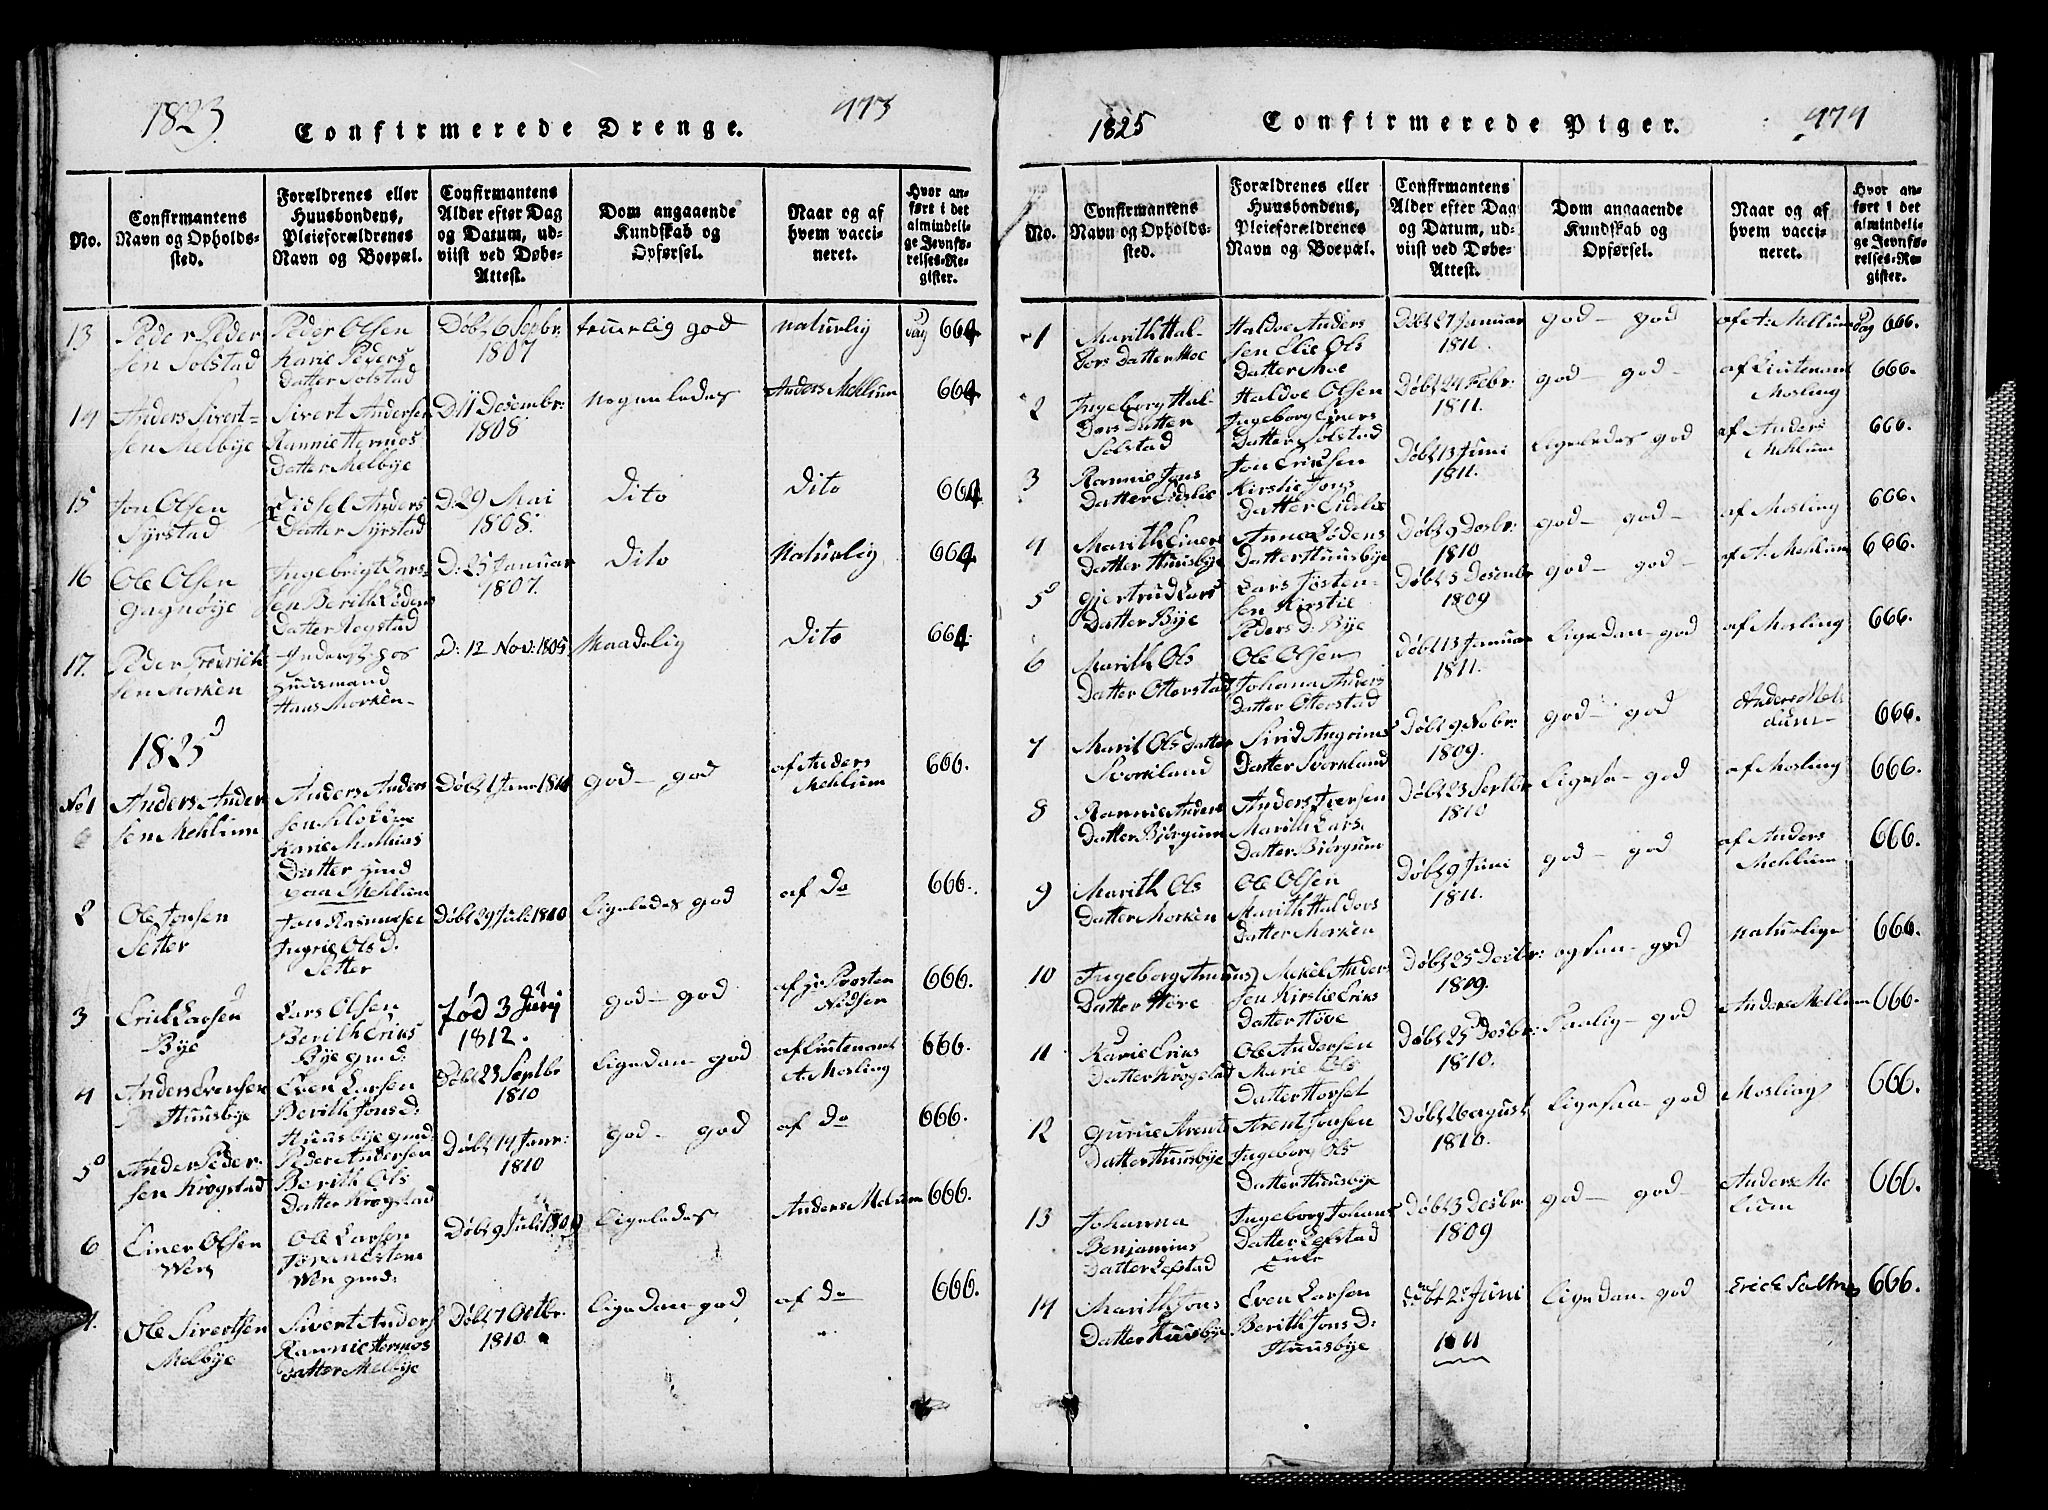 1823.
Confirmerede Drenge.
473
No.
Confirmantens
Navn og Opholds-
sted.
Forældrenes eller
Huusbondens,
Pleieforældrenes
Navn og Boepæl.
Confirmantens
Alder efter Dag
og Datum, ud-
viist ved Døbe-
Attest.
Dom angaaende
Kundskab og
Opførsel.
Naar og af
hvem vacci-
neret.
Hvor an-
ført i det
almindeli-
ge Jevnfø-
relses-Re-
gister.
13
Peder Peder
sen Solstad
Peder Olsen
Karie Peders
Datter Solstad
Døbt 6 Sepbr:
1807
god
naturlig
Pag 664
14
Anders Sivert-
sen Melbye
Sivert Andersen
Rannie Hermos
Datter Melbye
D 11 Desembr:
1808
Anders Mehlum
664
15
Jon Olsen
Syrstad
Anders
Datter Syrstad
D: 29 Mai
1808.
Dito
Dito
664
16
Ole Olsen
Gagnøye
Ingebrigt Lars-
sen Berith Lødens
Datter
D: 25 Januar
1807.
Dito
Naturlig
664
17.
Peder Fredrick
sen Morken
hos
Huusmand
Hans Morken
D: 12 Nov: 1805
Maadelig
Dito
664
1825
No 1
Anders Ander
sen Mehlum
Anders Anders
sen
Karie Mathias
Datter
paa Mehlum
Døbt 1 Janr 1811
god - god
af Anders
Mehlum
666.
2
Ole Jonsen
Setter
Jon Rasmussen
Ingrie Ols D.
Setter
Døbt 29 Juli 1810
Ligeledes god
af Do
666.
3
Erick Larsen
Bye
Lars Olsen
Berith Eriks
Bye gmd.
Fød 3 Juny
1812.
god - god
af Hr Prosten
666.
4
Anders Evensen
Huusbye
Even Larsen
Berith Jons D:
Huusbye gmd:
Døbt 23 Septbr
1810
Ligedan - god
af Lieutenant
A: Mosling
666.
5
Ander Peder-
sen Krogstad
Peder Andersen
Berith Ols
Datter Krogstad
Døbt 14 Janr:
1810
god - god
af Do
666.
6
Einer Olsen
Wen
Ole Larsen
Wen gmd:
Døbt 9 Juli 1809
Ligeledes
Anders Melum
666.
7.
Ole Sivertsen
Melbye
Sivert Anders
Rannie Hermos
Datter Melbye
Døbt 7 Octbr.
1810.
Ligedan god
af Do
666.
1825
Confirmerede Piger.
474
No.
Confirmantens
Navn og Opholds-
sted.
Forældrenes eller
Huusbondens,
Pleieforældrenes
Navn og Boepæl.
Confirmantens
Alder efter Dag
og Datum, ud-
viist ved Døbe-
Attest.
Dom angaaende
Kundskab og
Opførsel.
Naar og af
hvem vacci-
neret.
Hvor an-
ført i det
almindeli-
ge Jevnfø-
relses-Re-
gister.
1
Marith Hal-
dors Datter Moe
Haldoe Anders
sen Elie Ols
Datter Moe
Døbt 27 Januar
1811.
god - god
af A: Mehlum
Pag 666.
2
Ingeborg Hal-
Dors Datter
Solstad
Haldoe Olsen
Ingeborg Einers
Datter Solstad
Døbt 24 Febr:
1811.
god - god -
af Lieutenant
Mosling
666.
3
Rannie Jons
Datter Eidslie
Jon Ericksen
Kirstie Jons
Datter Eidslie
Døbt 13 Juni
1811.
Ligeledes god
af Anders
Mehlum
666.
4
Marith Einers
Datter Huusbye
Anna Lødens
Datter Huusbye
Døbt 9 Desbr:
1810
god - god -
af Mosling
666.
5
Gjertrud Lars
Datter Bye
Lars Josten-
sen Kirstie
Peders D. Bye
Døbt 5 Desembr
1809
god - god -
af A: Mehlum
666.
6
Marith Ols
Datter Otterstad
Ole Olsen
Johana Anders
Datter Otterstad
Døbt 13 Januar
1811.
Ligedan - god
af Mosling
666.
7
Marit Ols Datter
Svorkland
Sirid Angrimes
Datter Svorkland
Døbt 9 Nobr:
1809.
god - god
Anders Meh
lum
666.
8
Rannie Anders
Datter Biørgum
Anders Iversen
Marith Lars
Datter Biørgum
Døbt 23 Septbr
1810
Ligesaa - god
af Mosling
666.
9
Marith Ols
Datter Morken
Ole Olsen
Marith Haldors
Datter Morken
Døbt 9 Juni
1811.
god - god
af Anders
Mehlum
666.
10
Ingeborg
Datter Hove
Mikel Anders
sen Kirstie Eriks
Datter Hove
Døbt 25 Desbr:
1809.
ogsaa - god
naturlige
666.
11
Karie Eriks
Datter Krogstad
Ole Andersen
Marie Ols
Datter Horset
Døbt 25 Desbr:
1810.
god
Anders Mehlum
666.
12
Gurue Arent
Datter Huusbye
Arent Jonsen
Ingeborg Ols
Datter Huusbye
Døbt 26 August
1810.
Ligesaa - god
Mosling
666.
13
Johanna
Benjamins
Datter Lefstad
Ingeborg Johans
Datter Lefstad
Enke
Døbt 3 Desbr
1809
god - god -
Anders Me
lum
666.
14
Marith Jons
Datter Huusbye
Even Larsen
Berith Jons D:
Huusbye
Døbt 2 Juni
1811
Ligedan - god
Erick Saltnes
666.